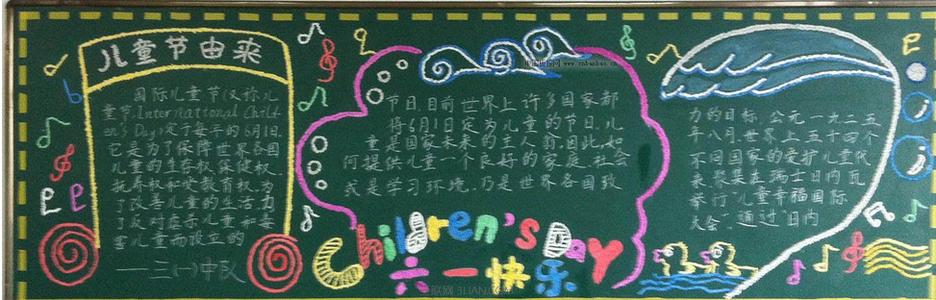 儿童节由来
国际儿童节(又称儿
童节,International Child-
en's Day)定于每年的6月1日.
它是为了保障世界各国
儿童的生存权、保健权、
抚养权和受教育权,为
了改善儿童的生活,为
了反对虐杀儿童和毒
害儿童而设立的
——三(一)中队
节日目前世界上许多国家都
将6月1日定为儿童的节日.儿
童是国家未来的主人翁.因此,如
何提供儿童一个良好的家庭、社会
或是学习环境,乃是世界各国致
力的目标.公元一九二五
年八月,世界上五十四个
不同国家的爱护儿童代
表,聚集在瑞士日内瓦
举行"儿童幸福国际
大会",通过"日内
Children's Day
六一快乐